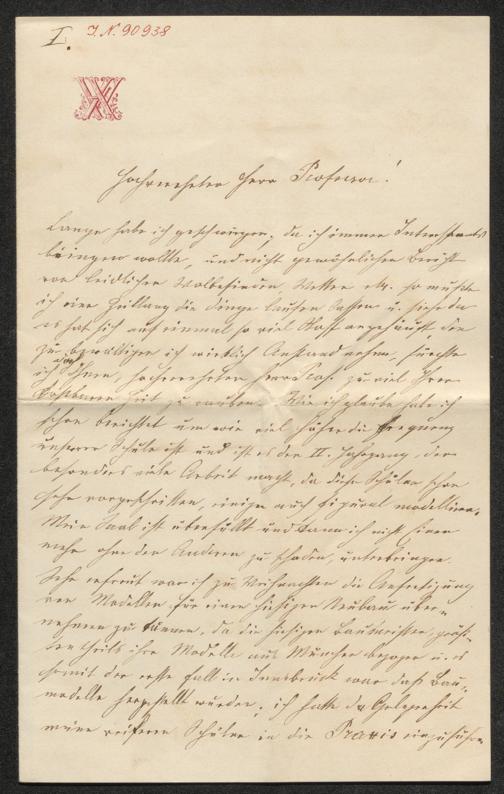 I. J. N. 90938
Hochverehrter Herr Professor!
Lange habe ich geschwiegen, da ich immer Interessantes
bringen wollte, und nicht gewöhnlichen Bericht
von leidlichen Wolbefinden, Wetter etz. so mußte
ich eine Zeitlang die Dinge laufen lassen u. siehe da
es hat sich auf einmal so viel Stoff angehäuft den
zu bewältigen ich wirklich Anstand nehme, fürchte
ich doch Ihnen, hochverehrten Herr Prof. zu viel Ihrer
kostbaren Zeit zu rauben. Wie ich glaube habe ich
schon berichtet um wie viel höher die Frequenz
unserer Schule ist und ist es der II. Jahrgang, der
besonders viele Arbeit macht, da diese Schüler schon
sehr vorgeschritten, einige auch figural modelliren.
Mein Saal ist überfüllt und kann ich nicht einen
mehr ohne den Anderen zu schaden, unterbringen.
Sehr erfreut war ich zu Weihnachten die Anfertigung
von Modellen für einen hiesigen Neubau über-
nehmen zu können, da die hiesigen Baumeister größ-
tentheils ihre Modelle aus München bezogen u. es
somit der erste Fall in Innsbruck war daß Bau-
modelle hergestellt wurden; ich hatte da Gelegenheit
meine reiferen Schüler in die Praxis einzuführen